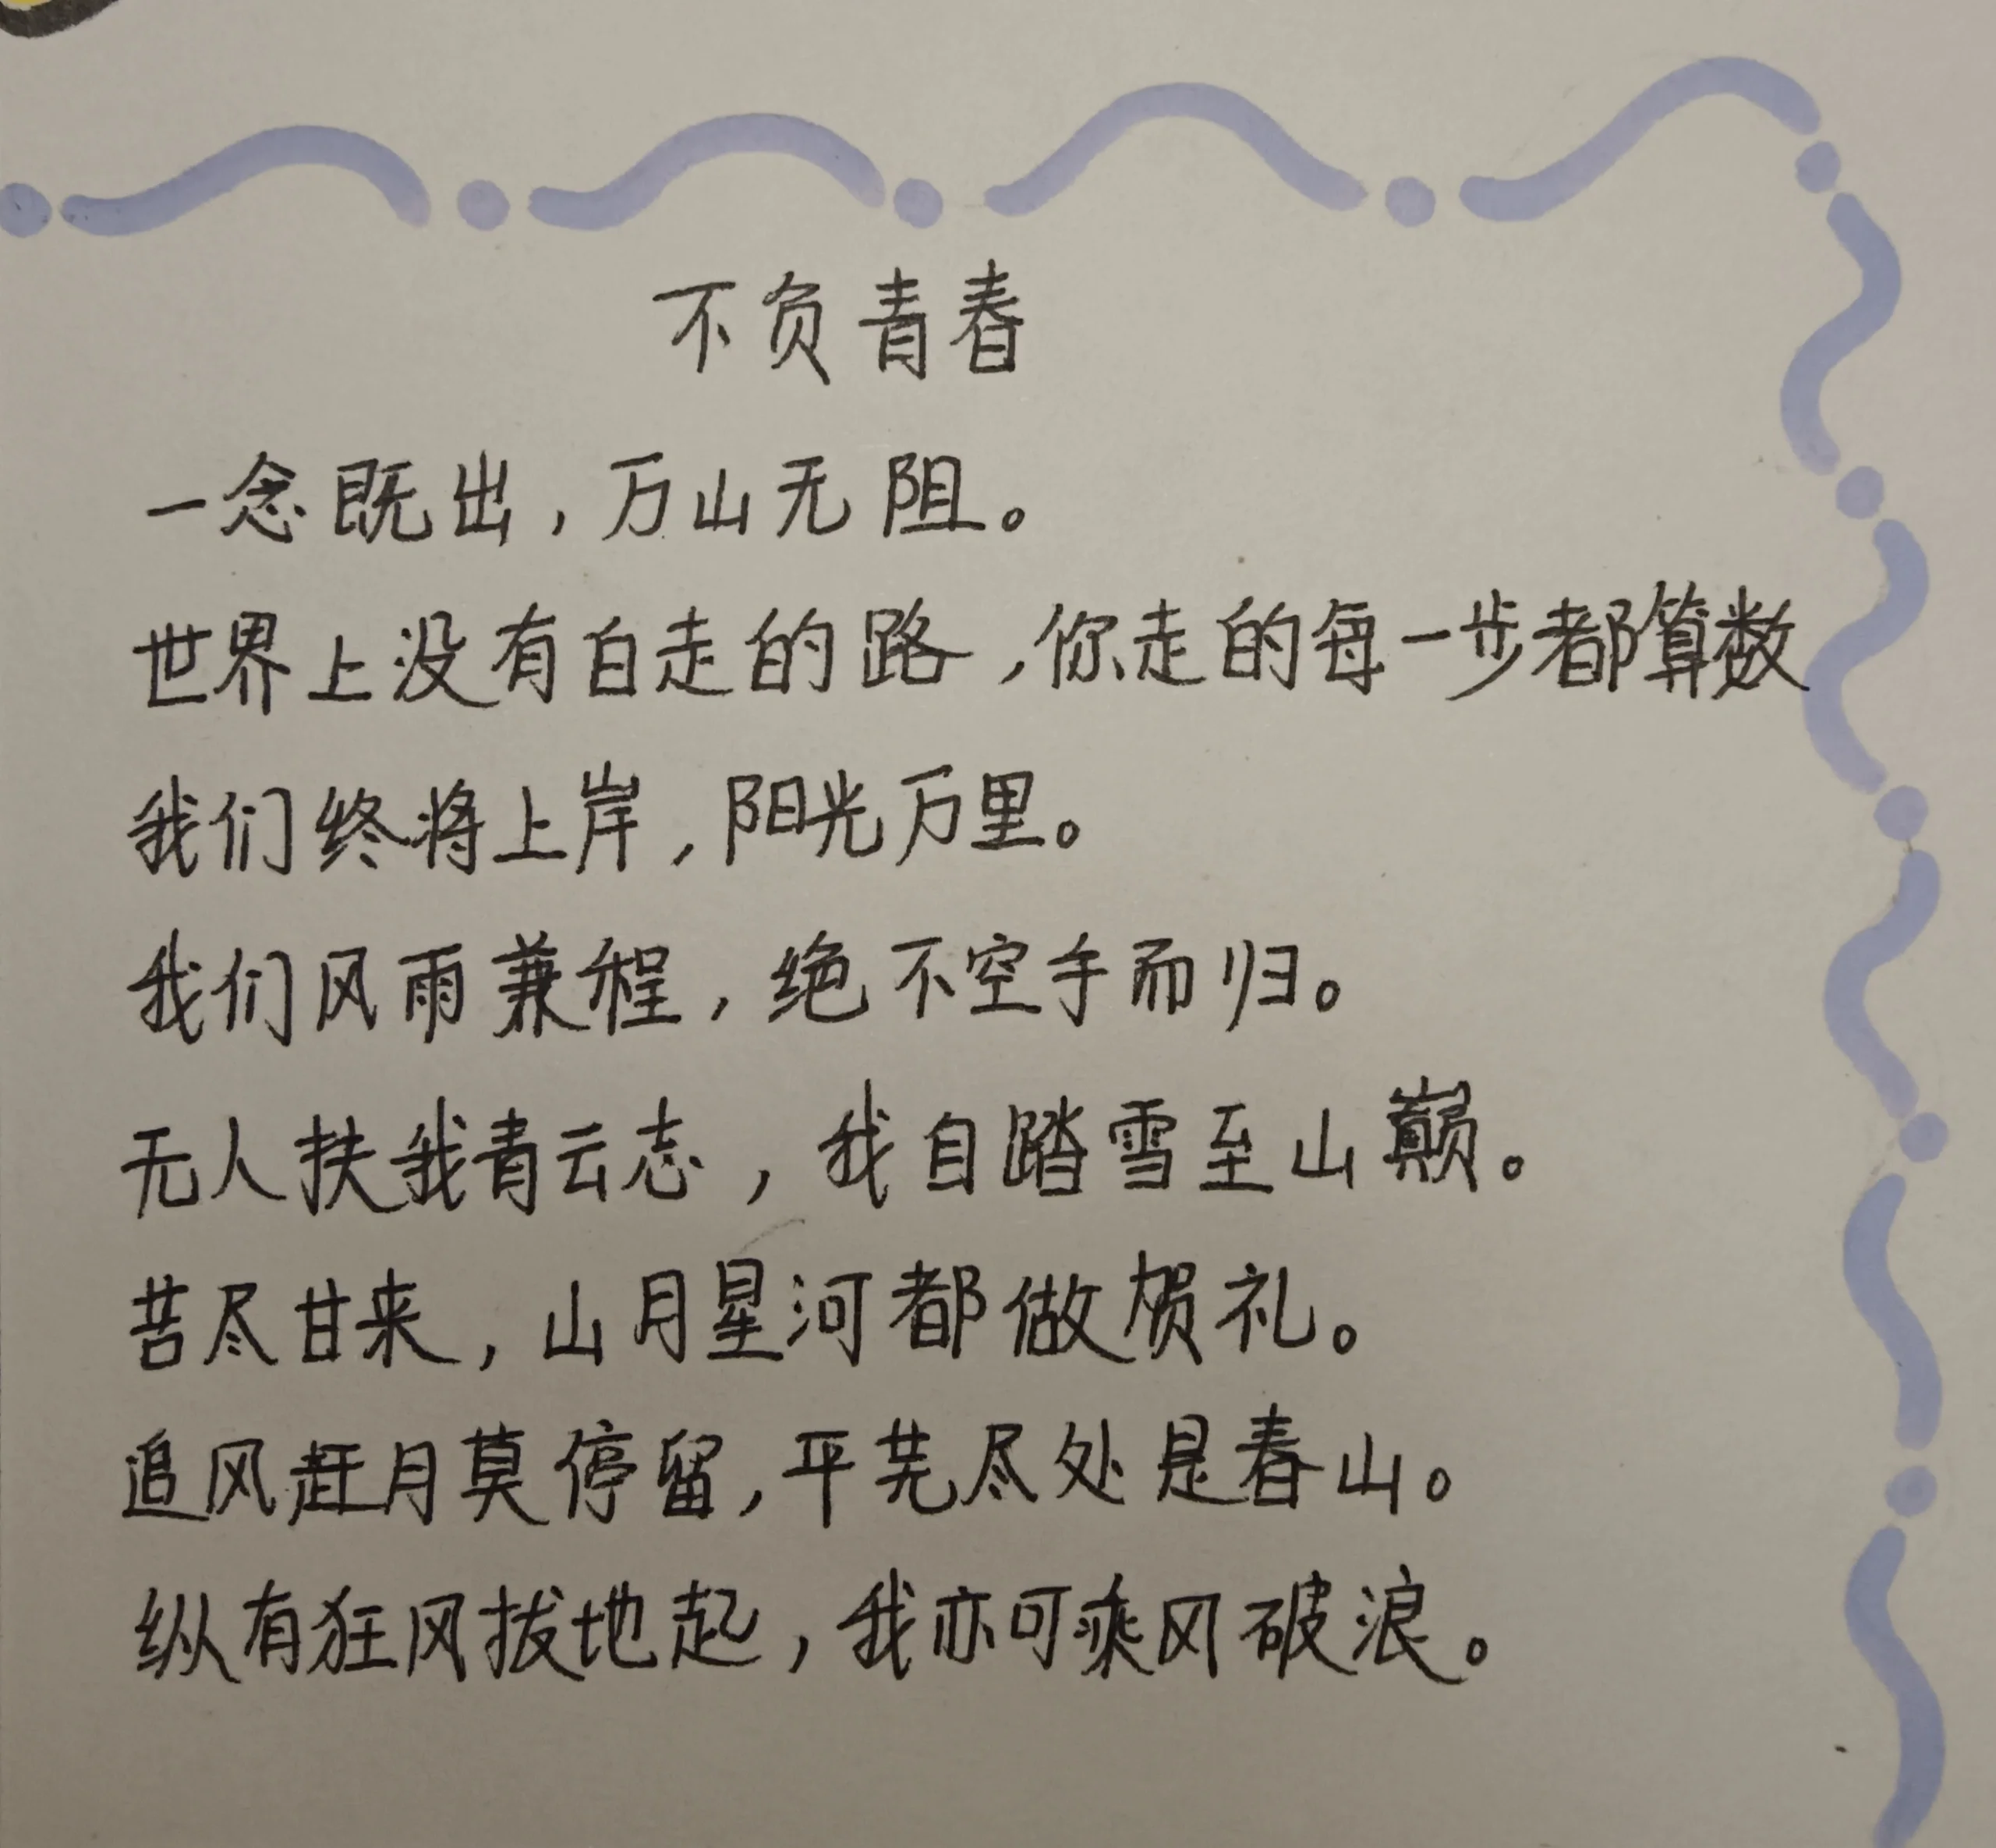 不负青春
一念既出，万山无阻。
世界上没有白走的路，你走的每一步都算数
我们终将上岸，阳光万里。
我们风雨兼程，绝不空手而归。
无人扶我青云志，我自踏雪至山巅。
苦尽甘来，山月星河都做贺礼。
追风赶月莫停留，平芜尽处是春山。
纵有狂风拔地起，我亦可乘风破浪。